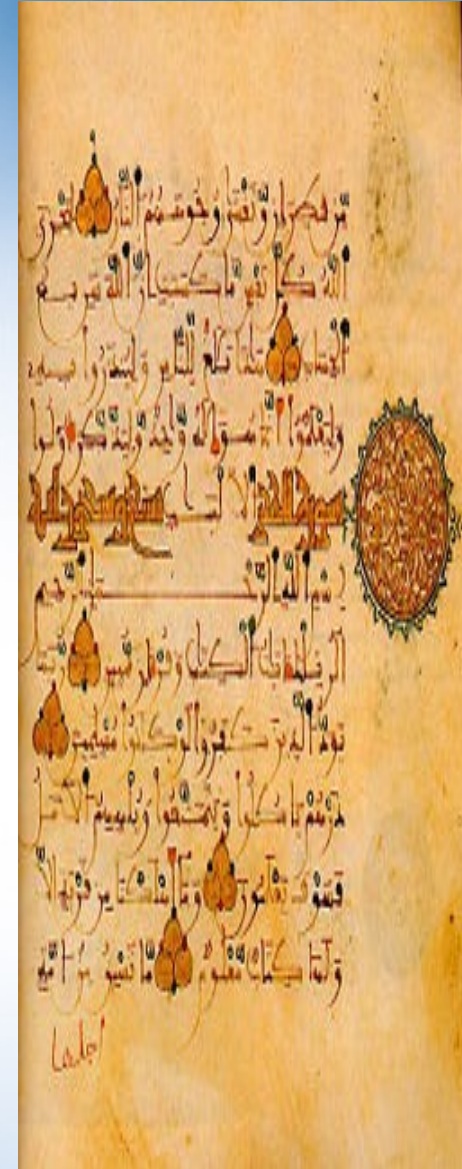 مِّن قَطِرَانٍ وَتَغْشَىٰ وُجُوهَهُمُ ٱلنَّارُ لِيَجْزِىَ
ٱللَّهُ كُلَّ نَفْسٍ مَّا كَسَبَتْ إِنَّ ٱللَّهَ سَرِيعُ
ٱلْحِسَابِ هَٰذَا بَلَٰغٌ لِّلنَّاسِ وَلِيُنذَرُوا۟ بِهِۦ
وَلِيَعْلَمُوٓا۟ أَنَّمَا هُوَ إِلَٰهٌ وَٰحِدٌ وَلِيَذَّكَّرَ أُو۟لُوا۟
ٱلْأَلْبَٰبِ سورة الحجر
بِسْمِ ٱللَّهِ ٱلرَّحْمَٰنِ ٱلرَّحِيمِ
الٓر تِلْكَ ءَايَٰتُ ٱلْكِتَٰبِ وَقُرْءَانٍ مُّبِينٍ رُّبَمَا
يَوَدُّ ٱلَّذِينَ كَفَرُوا۟ لَوْ كَانُوا۟ مُسْلِمِينَ
ذَرْهُمْ يَأْكُلُوا۟ وَيَتَمَتَّعُوا۟ وَيُلْهِهِمُ ٱلْأَمَلُ
فَسَوْفَ يَعْلَمُونَ وَمَآ أَهْلَكْنَا مِن قَرْيَةٍ إِلَّا
وَلَهَا كِتَابٌ مَّعْلُومٌ مَّا تَسْبِقُ مِنْ أُمَّةٍ
أجلها